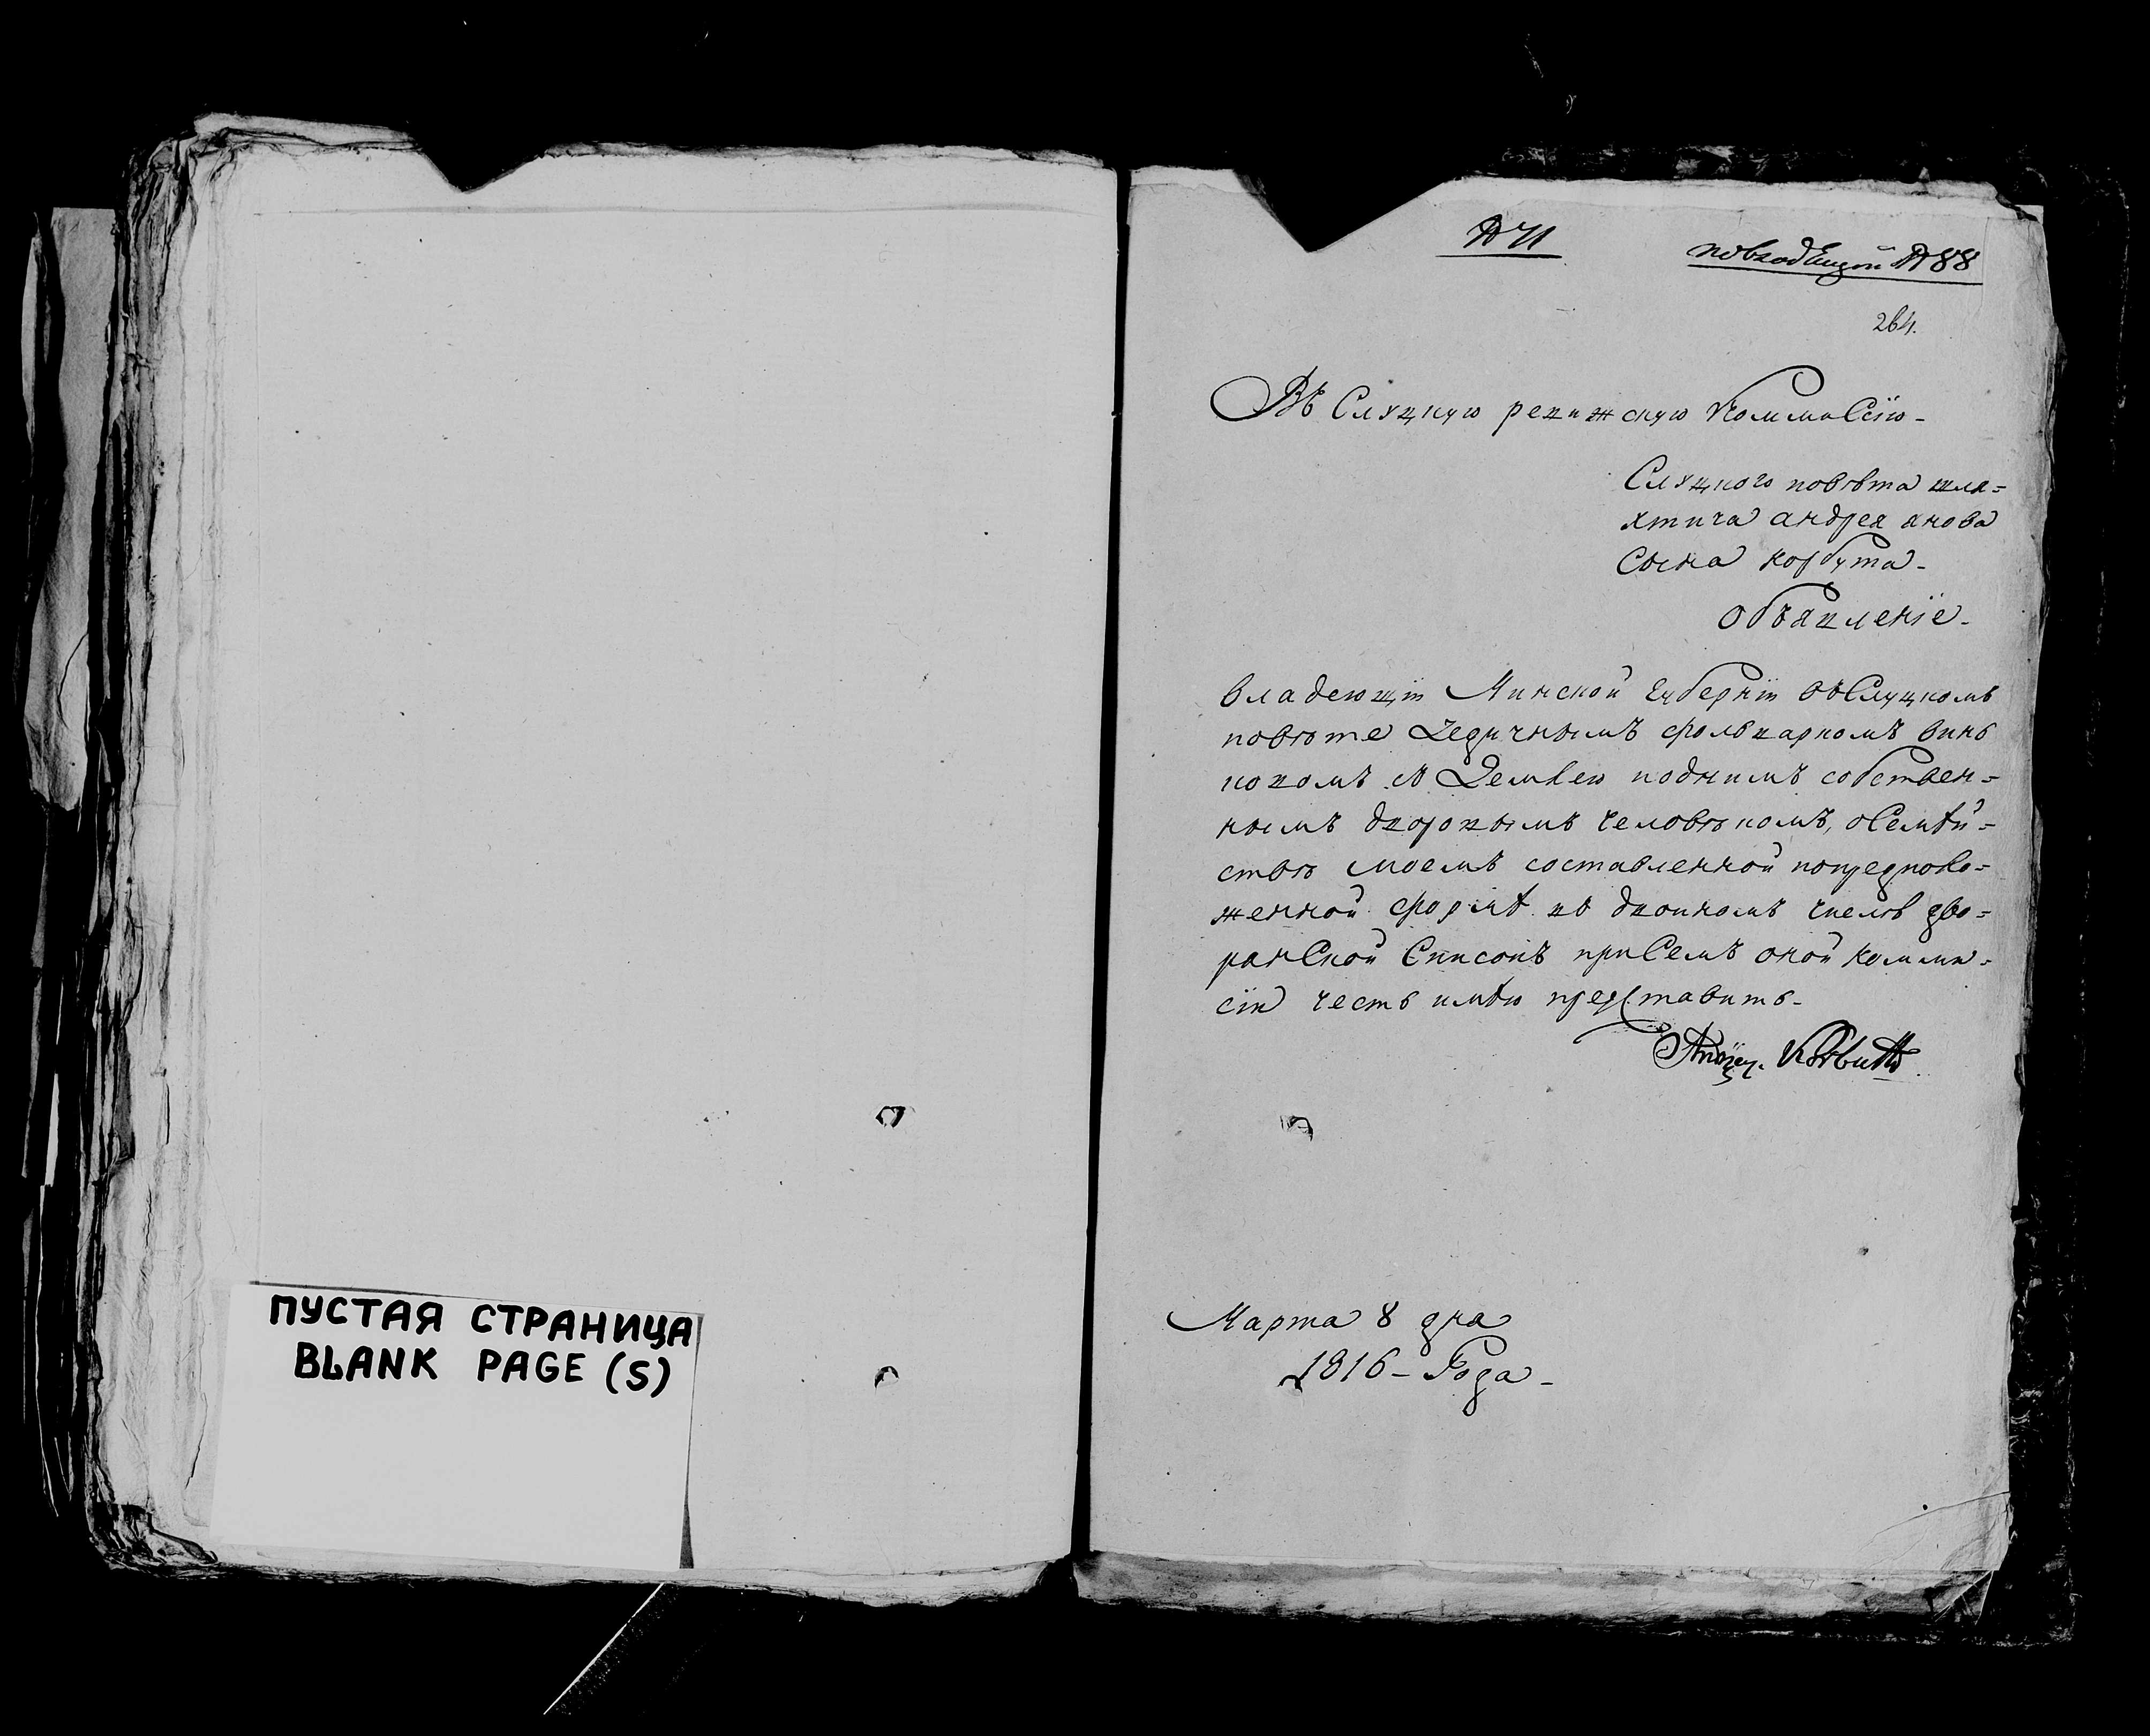 ПУСТАЯ СТРАНИЦА
BLANK PAGE (S)
№ 71
по входящей № 88
264.
Въ Слуцкую ревижскую Коммисію-
Слуцкого повѣта шля=
хтича андрея янова
Сына корбута-
объявленіе-
владеющій Минской Губерніи въ Слуцкомъ
повѣте Дедичнымъ фольваркомъ
съ Землею и однимъ собствен=
нымъ дворовымъ человѣкомъ, о Семѣй=
ствѣ моемъ составленной по предполо=
женной формѣ въ двоиномъ числѣ дво=
рянской Списокъ при Семъ оной комми=
сіи честь имѣю представить-
Andrzey Korbutt
Марта 8 дня
1816- Года-